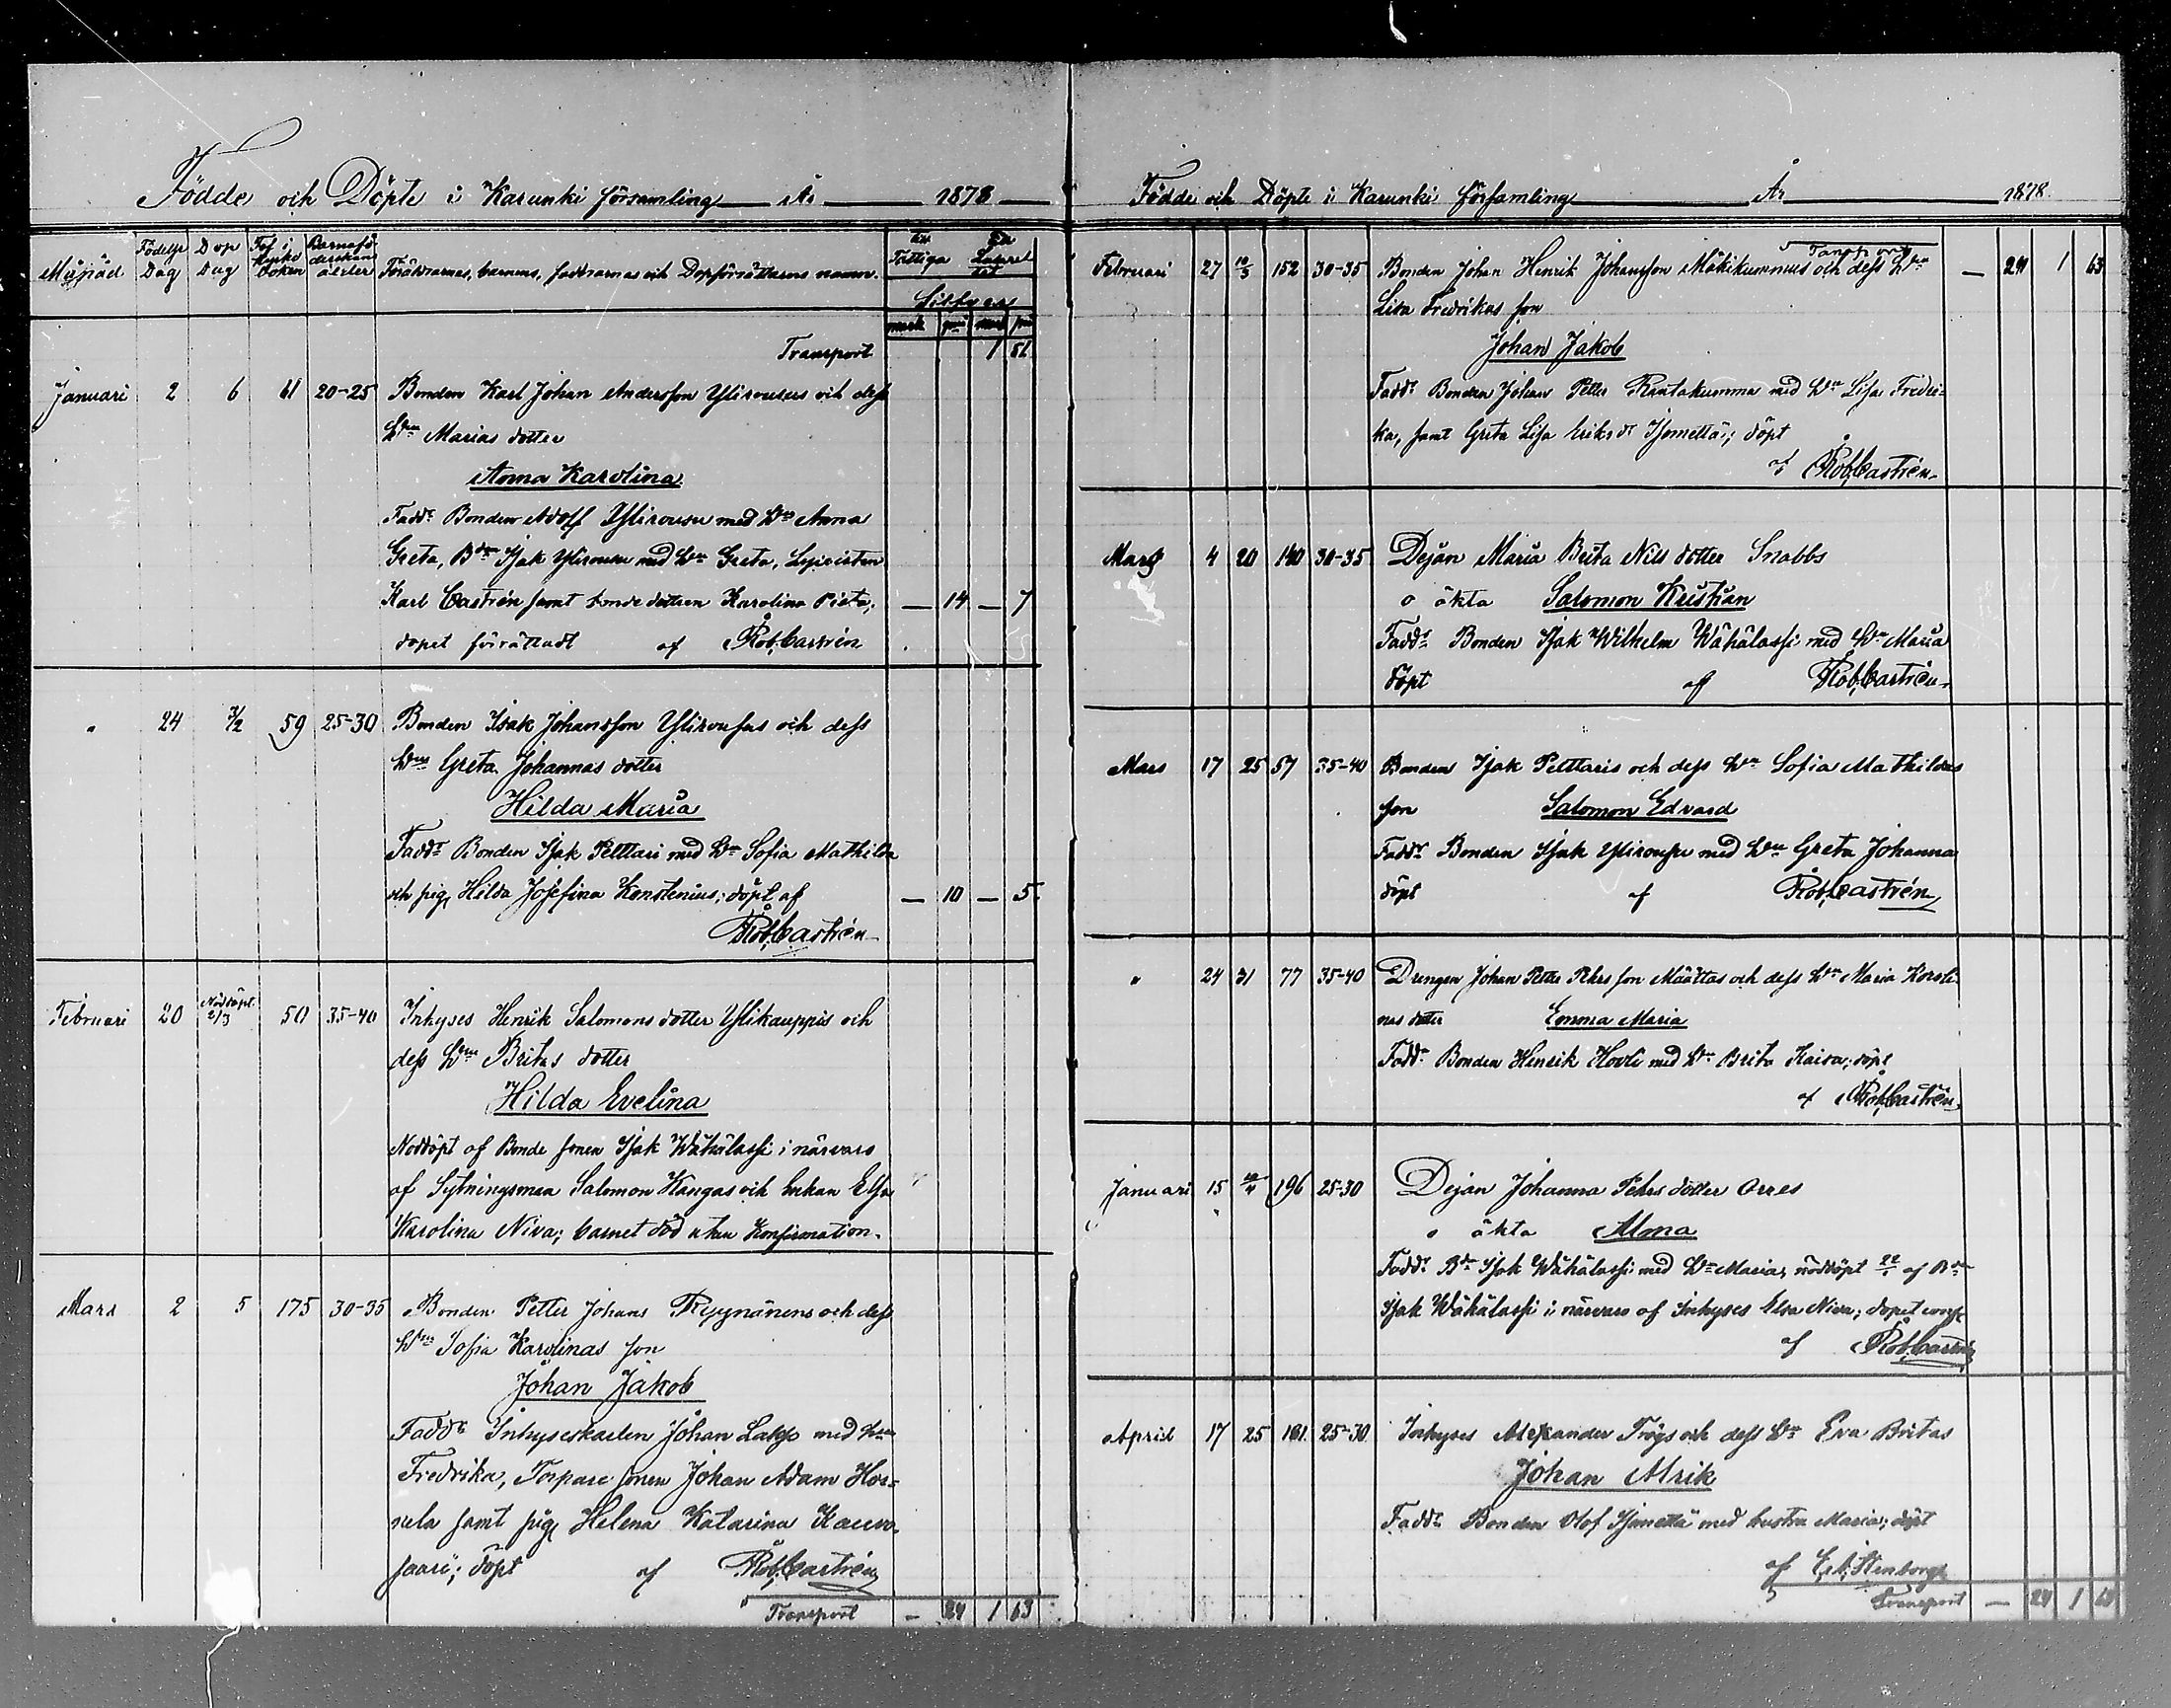 Födde och Döpte i Karunki församling År 1878
Månad Födelse Dag Dop Dag Fol i Kyrko boken Barnaföderskans ålder Föräldrarnas, barnens, faddrarnas och Dopförrättarens namn. Fattiga Lazaret
Silfver
mark pni mark pni
Transport 1 51
Januari 2 6 61 20-25 Bonden Karl Johan Andersson Ylirousus och dess
Hru Marias dotter
Anna Karolina
Faddr Bonden Adolf Ylirousu med Hu Anna
Greta, Bdn Isak Ylirousu med Hu Greta,
Karl Castrén samt bonde dottren Karolina — 14 — 7
dopet förrättadt af Rob. Castrén
" 24 3/2 59 25-30 Bonden Isak Johansson Ylirousus och dess
Hus Greta Johannas dotter
Hilda Maria
Faddr Bonden Isak Pelttari med Hu Sofia Mathilda
och pig. Hilda Josefina Konstenius; döpt af — 10 — 5.
Rob. Castrén
Februari 20 Nöddöpt 2/3 50 35-40 Inhyses Henrik Salomons dotter Ylikauppis och
dess Hru Britas dotter
Hilda Evelina
Nöddöpt af Bonde sonen Isak Wähälassi i närvaro
af Sytningsman Salomon Kangas och Enkan Elsa
Karolina Niva; barnet död utan Konfirmation.
Mars 2 5 175 30-35 Bonden Petter Johans Ryynänens och dess
Hru Sofia Karolinas son
Johan Jakob
Faddr Inhyseskarlen Johan Lakso med Hru
Fredrika, Torpare sonen Johan Adam
samt pig. Helena Katarina
saari; döpt af Rob. Castrén
Transport — 24 1 63
Födde och Döpte i Karunki församling År 1878.
Transport
Februari 27 10/3 152 30-35 Bonden Johan Henrik Johansson Mäkikummus och dess Hru — 24 1 63
Lisa Fredrikas son
Johan Jakob
Faddr Bonden Johan Petter Rantakumma med Hu Lisa Fredri-
ka, samt Greta Lisa Eriks dr Isometsä; döpt
af Rob. Castrén
Mars 4 20 140 30-35 Dejan Maria Brita Nils dotter Snabbs
o äkta Salomon Kristian
Faddr Bonden Isak Wilhelm Wähälassi med Hu Maria
döpt af Rob. Castrén
Mars 17 25 57 35-40 Bonden Isak Pelttaris och dess Hu Sofia Mathildas
son Salomon Edvard
Faddr Bonden Isak Ylirousu med Hu Greta Johanna
döpt af Rob. Castrén
" 24 31 77 35-40 Drengen Johan Petter Pehrs son Määttas och dess Hu Maria Karoli-
nas dotter Emma Maria
Faddr Bonden Henrik Hooli med Hu Brita Kaisa; döpt
af Rob. Castrén
Januari 15 196 25-30 Dejan Johanna Pehrs dotter Orres
o äkta Alma
Faddr Bdn Isak Wähälassi med Hu Maria, nöddöpt 22/1 af Bdn
Isak Wähälassi i närvaro af Inhyses Elsa Niva; dopet conf.
af Rob. Castrén
April 17 25 161 25-30 Inhyses Alexander Frögs och dess Hu Eva Britas
Johan Alrik
Faddr Bonden Olof Isometsä med hustru Maria; döpt
af Stenborg
Transport — 24 1 63